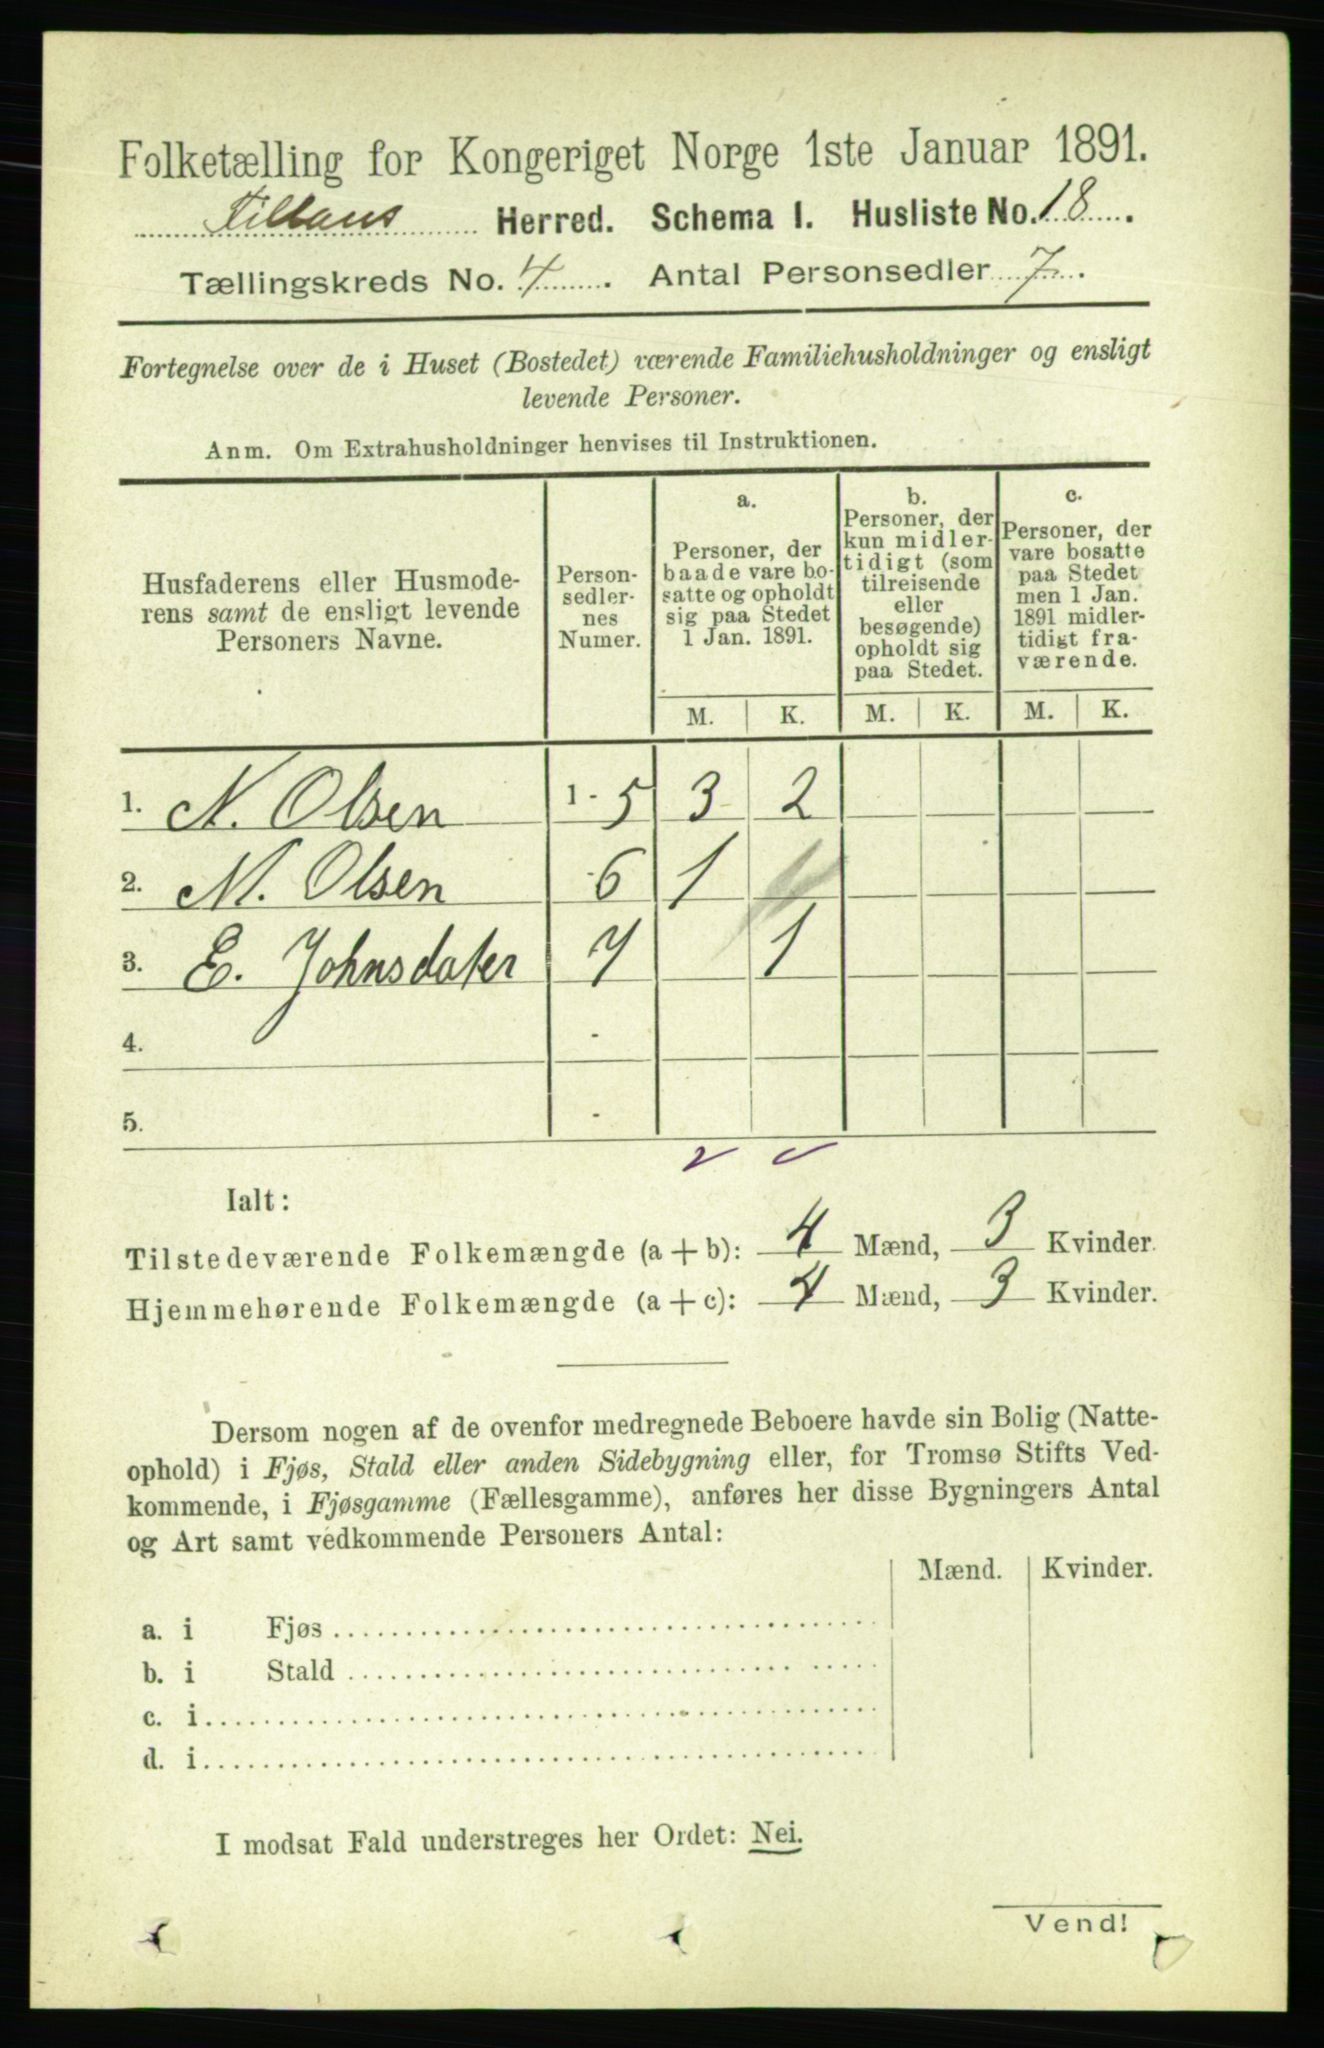 Folketælling for Kongeriget Norge 1ste Januar 1891.
Herred. Schema I. Husliste No. 18.
Tællingskreds No. 4. Antal Personsedler 7.
Fortegnelse over de i Huset (Bostedet) værende Familiehusholdninger og ensligt
levende Personer.
Anm. Om Extrahusholdninger henvises til Instruktionen.
Husfaderens eller Husmode-
rens samt de ensligt levende
Personers Navne.
Person-
sedler-
nes
Numer.
a.
Personer, der
baade vare bo-
satte og opholdt
sig paa Stedet
1 Jan. 1891.
b.
Personer, der
kun midler-
tidigt (som
tilreisende
eller
besøgende)
opholdt sig
paa Stedet.
c.
Personer, der
vare bosatte
paa Stedet
men 1 Jan.
1891 midler-
tidigt fra-
værende.
M. K. M. K. M. K.
1. N. Olsen 1 - 5 3 2
2. M. Olsen 6 1
3. E. Johnsdater 7 1
4. -
5. -
Ialt:
Tilstedeværende Folkemængde (a + b): 4 Mænd, 3 Kvinder.
Hjemmehørende Folkemængde (a + c): 4 Mænd, 3 Kvinder.
Dersom nogen af de ovenfor medregnede Beboere havde sin Bolig (Natte-
ophold) i Fjøs, Stald eller anden Sidebygning eller, for Tromsø Stifts Ved-
kommende, i Fjøsgamme (Fællesgamme), anføres her disse Bygningers Antal
og Art samt vedkommende Personers Antal:
Mænd. Kvinder.
a. i Fjøs
b. i Stald
c. i
d. i
I modsat Fald understreges her Ordet: Nei.
Vend!